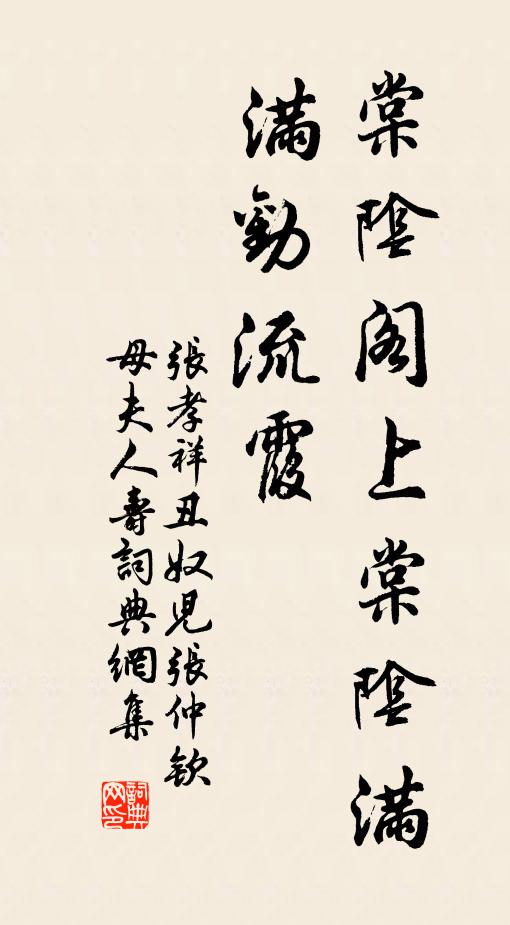 棠陰阁上棠陰滿
滿勸流霞
張孝祥丑奴児張仲欽
母夫人壽詞典網集
詞典网印